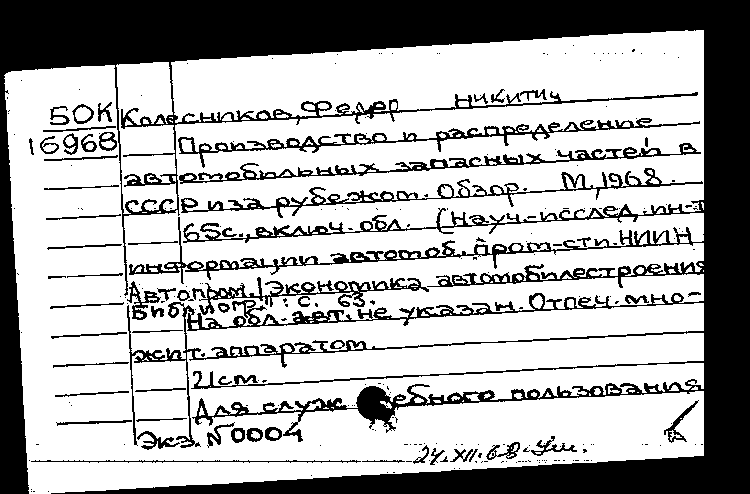 БОК Колесников, Федор Никитич
16968 Производство и распределение
автомобильных запасных частей в
СССР и за рубежом. Обзор. М., 1968.
65с., включ. обл. (Науч.-исслед. ин-т
информации автомоб. пром-сти. НИИН
Автопром.) Экономика автомобилестроения
Библиогр.: с. 63.
На обл. авт. не указан. Отпеч. мно-
жит. аппаратом.
21cm.
Для служебного пользования
Экз. N 0004
24.XII.68